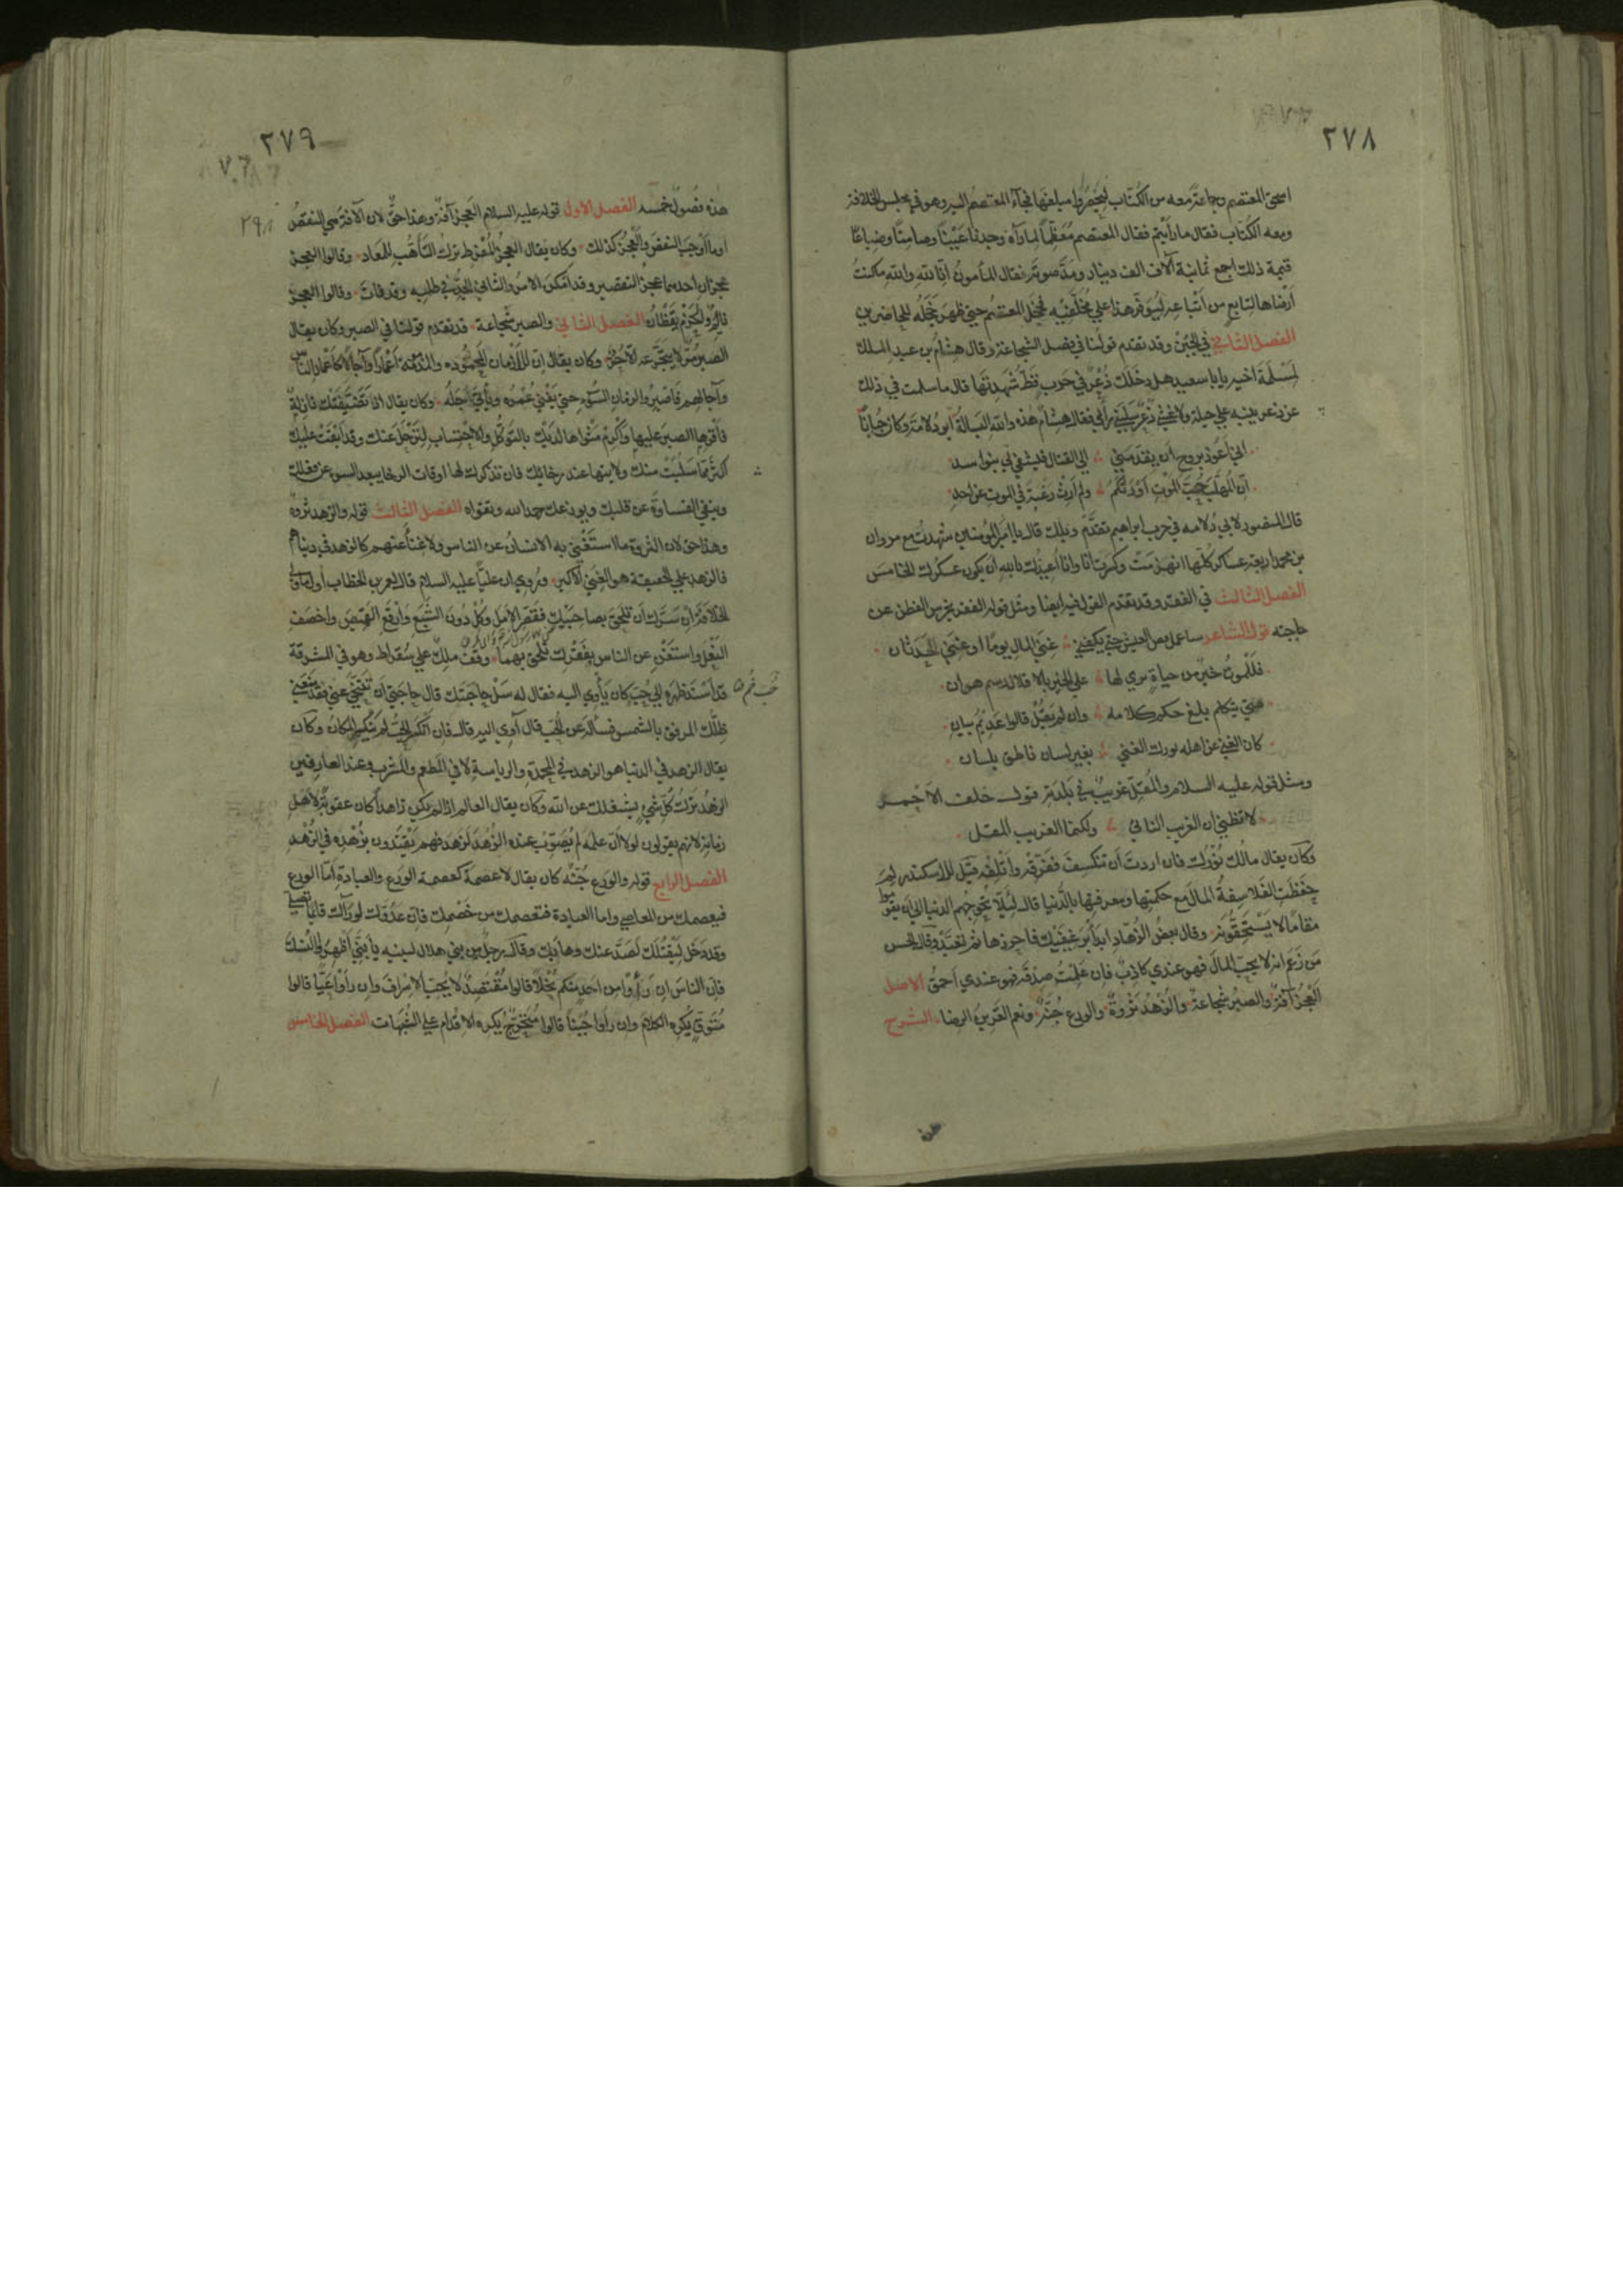 ٢٧٨
اسحق المعتصم وجماعة معه من الكتاب ليحصروا مبلغها فجاء المعتصم اليه وهو في مجلس الخلافة
ومعه الكتاب فقال ما رأيتم فقال المعتصم معظما لما رآه وجدنا عينا وصامتا وضياعا
قيمة ذلك اجمع ثمانية آلاف الف دينار ومد صوته فقال المأمون انا لله والله ما كنت
أرضاها لتابع من أتباعه ليوفر هذا على مخلفيه فخجل المعتصم حتى ظهر خجله للحاضرين
الفصل الثاني في الجبن وقد تقدم قولنا في فضل الشجاعة وقال هشام بن عبد الملك
لمسلمة اخيه يا با سعيد هل دخلك ذعر في حرب قط شهدتها قال ما سلمت في ذلك
عن ذعر ينبه على حيلة ولا غشيني ذعر سلبني رأيي فقال هشام هذه والله البسالة أبو دلامة وكان جبانا
اني اعوذ بروح أن يقدمني إلى القتال فيشقى بي بنو اسد
ان المهلب حب الموت أورثكم ولم ارث رغبة في الموت عن احد
قال المنصور لابي دلامه في حرب ابراهيم تقدم ويلك قال يا أمير المؤمنين شهدت مع مروان
بن محمد اربعة عساكر كلها انهزمت وكسرت وانا اعيذك بالله أن يكون عسكرك الخامس
الفصل الثالث في الفقر وقد تقدم القول فيه ايضا ومثل قوله الفقر يخرس الفطن عن
حاجته قول الشاعر ساعمل نص العيس حتى يكفني غنى المال يوما أو غنى الحدثان
فللموت خير من حياة يرى لها على الحر بالاقلال وسم هوان
متى يتكلم يلغ حكم كلامه وان لم يقل قالوا عديم بيان
كان الغني عن اهله بورك الغنى بغير لسان ناطق بلسان
ومثل قوله عليه السلام والمقل غريب في بلدته قول خلف الاحمر
لا تظني ان الغريب النائي ولكنما الغريب المقل
وكان يقال مالك نورك فان اردت أن تنكسف ففرقه وأتلفه قيل للاسكندر لم
حفظت الفلاسفة المال مع حكمتها ومعرفتها بالدنيا قال لئلا تحوجهم الدنيا الى أن يقوموا
مقاما لا يستحقونه وقال بعض الزهاد ابدأ برغيفيك فاحرزهما ثم تعبد وقال الحسن
من زعم انه لا يحب المال فهو عندي كاذب فان علمت صدقه فهو عندي احمق الاصل
العجز آفة والصبر شجاعة والزهد ثروة والورع جنة ونعم القرين الرضا الشرح
٢٧٩
هذه فصول خمسه الفصل الاول قوله عليه السلام العجز آفة وهذا حق لان الآفة هي النقص
او ما أوجب النقص والعجز كذلك وكان يقال العجز المفرط ترك التأهب للمعاد وقالوا العجز
عجزان احدهما عجز التقصير وقد امكن الامر والثاني الجد في طلبه وقد فات وقالوا العجز
نائم والحزم يقظان الفصل الثاني والصبر شجاعة قد تقدم قولنا في الصبر وكان يقال
الصبر مر لا يتجرعه الا حر وكان يقال ان للازمان المحمودة والمذمومة أعمارا وآجالا كاعمار الناس
وآجالهم فاصبروا لزمان السوء حتى يفنى عمره ويأتي أجله وكان يقال اذا تضيفتك نازلة
فاقرها الصبر عليها وأكرم مثواها لديك بالتوكل والاحتساب لترحل عنك وقد أبقت عليك
اكثر مما سلبت منك ولا تنسها عند رخائك فان تذكرك لها اوقات الرخا يبعد السوء عن فعلك
وينفي القساوة عن قلبك ويوزعك حمد الله وتقواه الفصل الثالث قوله والزهد ثروة
وهذا حق لان الثروة ما استغنى به الانسان عن الناس ولا غناء عنهم كالزهد في دنياهم
فالزهد على الحقيقة هو الغنى الاكبر وروي ان عليا عليه السلام قال لعمر بن الخطاب أول ما ولي
الخلافة ان سرك أن تلحق بصاحبيك فقصر الامل وكل دون الشبع وارقع القميص واخصف
النعل واستغن عن الناس بفقرك تلحق بهما وقف ملك على سقراط وهو في المشرقة
قد اسند ظهره إلى حب كان يأوي اليه فقال له سل حاجتك قال حاجتي أن تتنحى عني فقد منعني
ظلك المرفق بالشمس فسأله عن الحب قال آوي اليه قال فان انكسر الحب لم ينكسر المكان وكان
يقال الزهد في الدنيا هو الزهد في المحمدة والرياسة لا في المطعم والمشرب وعند العارفين
الزهد ترك كل شيء يشغلك عن الله وكان يقال العالم اذا لم يكن زاهدا كان عقوبة لاهل
زمانه لانهم يقولون لولا أن علمه لم يصوب عنده الزهد لزهد فهم يقتدون بزهده في الزهد
الفصل الرابع قوله والورع جنة كان يقال لا عصمة كعصمة الورع والعبادة أما الورع
فيعصمك من المعاصي واما العبادة فتعصمك من خصمك فان عدوك لو رآك قائما تصلي
وقد دخل ليقتلك لصد عنك وهابك وقال رجل من بني هلال لبنيه يا بني أظهروا النسك
فان الناس ان رأوا من احد منكم بخلا قالوا مقتصد لا يحب الاسراف وان رأوا عيا قالوا
متوق يكره الكلام وان رأوا جبنا قالوا متحرج يكره الاقدام على الشبهات الفصل الخامس